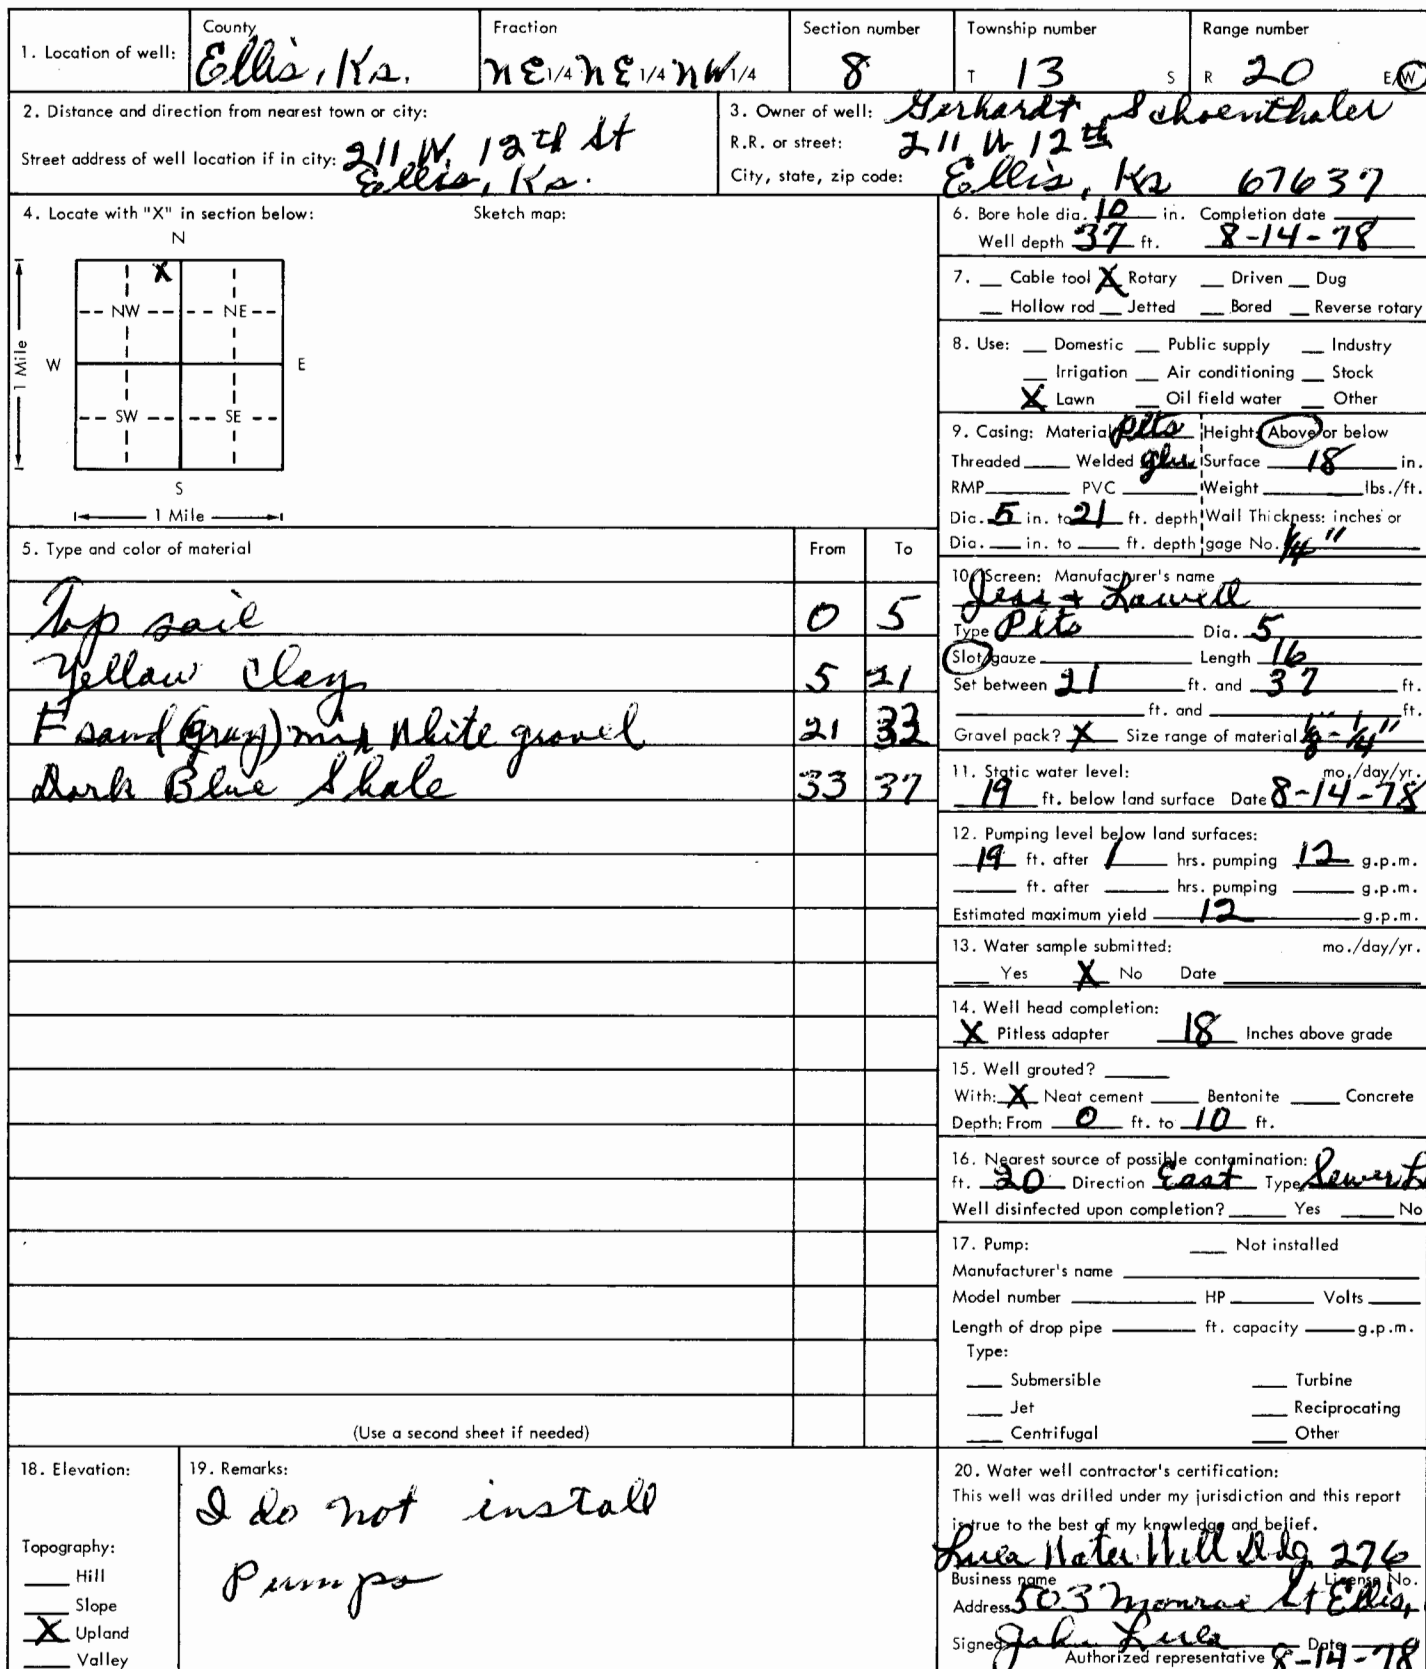 1. Location of well: County Ellis, Ks. Fraction NE 1/4 NE 1/4 NW 1/4 Section number 8 Township number T 13 S Range number R 20 E/W
2. Distance and direction from nearest town or city:
Street address of well location if in city: 211 W. 12th St
Ellis, Ks.
3. Owner of well: Gerhardt Schoenthaler
R.R. or street: 211 W 12th
City, state, zip code: Ellis, Ks 67637
4. Locate with "X" in section below: Sketch map:
N
X
NW NE
W E
1 Mile
SW SE
S
1 Mile
5. Type and color of material From To
Top soil 0 5
Yellow Clay 5 21
F sand (gray) mix White gravel 21 33
Dark Blue Shale 33 37
(Use a second sheet if needed)
6. Bore hole dia. 10 in. Completion date
Well depth 37 ft. 8-14-78
7. Cable tool X Rotary Driven Dug
Hollow rod Jetted Bored Reverse rotary
8. Use: Domestic Public supply Industry
Irrigation Air conditioning Stock
X Lawn Oil field water Other
9. Casing: Material Height: Above or below
Threaded Welded Surface 18 in.
RMP PVC Weight lbs./ft.
Dia. 5 in. to 21 ft. depth Wall Thickness: inches or
Dia. in. to ft. depth gage No. 1/4"
10. Screen: Manufacturer's name
Jess + Lowell
Type Dia. 5
Slot/gauze Length 16
Set between 21 ft. and 37 ft.
ft. and ft.
Gravel pack? X Size range of material 1/8" - 1/4"
11. Static water level: mo./day/yr.
19 ft. below land surface Date 8-14-78
12. Pumping level below land surfaces:
19 ft. after 1 hrs. pumping 12 g.p.m.
ft. after hrs. pumping g.p.m.
Estimated maximum yield 12 g.p.m.
13. Water sample submitted: mo./day/yr.
Yes X No Date
14. Well head completion:
X Pitless adapter 18 Inches above grade
15. Well grouted?
With: X Neat cement Bentonite Concrete
Depth: From 0 ft. to 10 ft.
16. Nearest source of possible contamination:
ft. 20 Direction East Type Sewer
Well disinfected upon completion? Yes No
17. Pump: Not installed
Manufacturer's name
Model number HP Volts
Length of drop pipe ft. capacity g.p.m.
Type:
Submersible Turbine
Jet Reciprocating
Centrifugal Other
18. Elevation:
Topography:
Hill
Slope
X Upland
Valley
19. Remarks:
I do not install
Pumps
20. Water well contractor's certification:
This well was drilled under my jurisdiction and this report
is true to the best of my knowledge and belief.
Water Well Dlg 276
Business name License No.
Address 503 Monroe St Ellis,
Signed John Date
Authorized representative 8-14-78